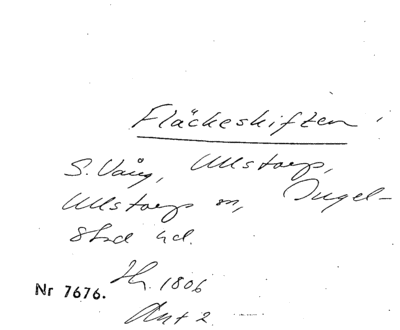 Fläckeskiften
S. Vång, Ullstorp,
Ullstorp sn, Ingel-
stad hd.
1806
Nr 7676.
Ant 2